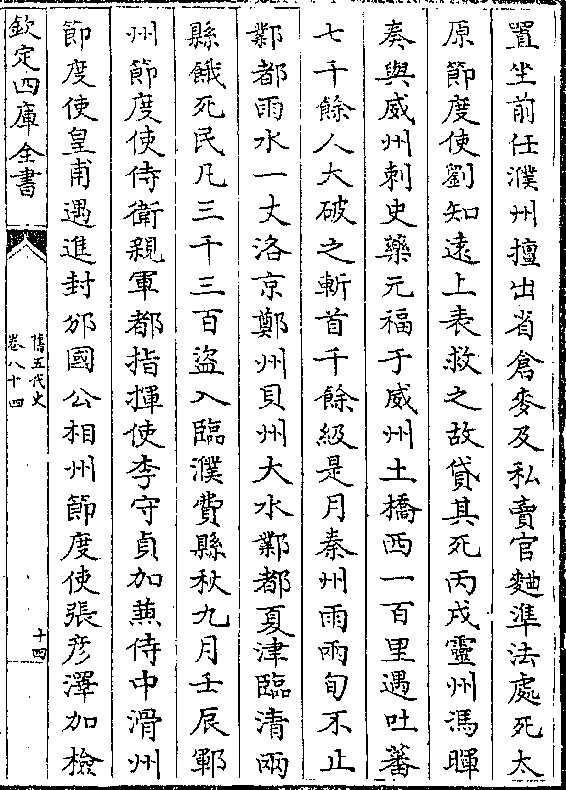 置坐前任濮州擅出省倉麥及私賣官麴準法處死太
原節度使劉知遠上表救之故貸其死丙戌靈州馮暉
奏與威州刺史藥元福于威州土橋西一百里遇吐蕃
七千餘人大破之斬首千餘級是月秦州雨兩旬不止
鄴都雨水一丈洛京鄭州貝州大水鄴都夏津臨清兩
縣餓死民凡三千三百盜入臨濮費縣秋九月壬辰鄆
州節度使侍衛親軍都指揮使李守貞加兼侍中滑州
節度使皇甫遇進封邠國公相州節度使張彦澤加檢
欽定四庫全書
舊五代史
卷八十四
十四